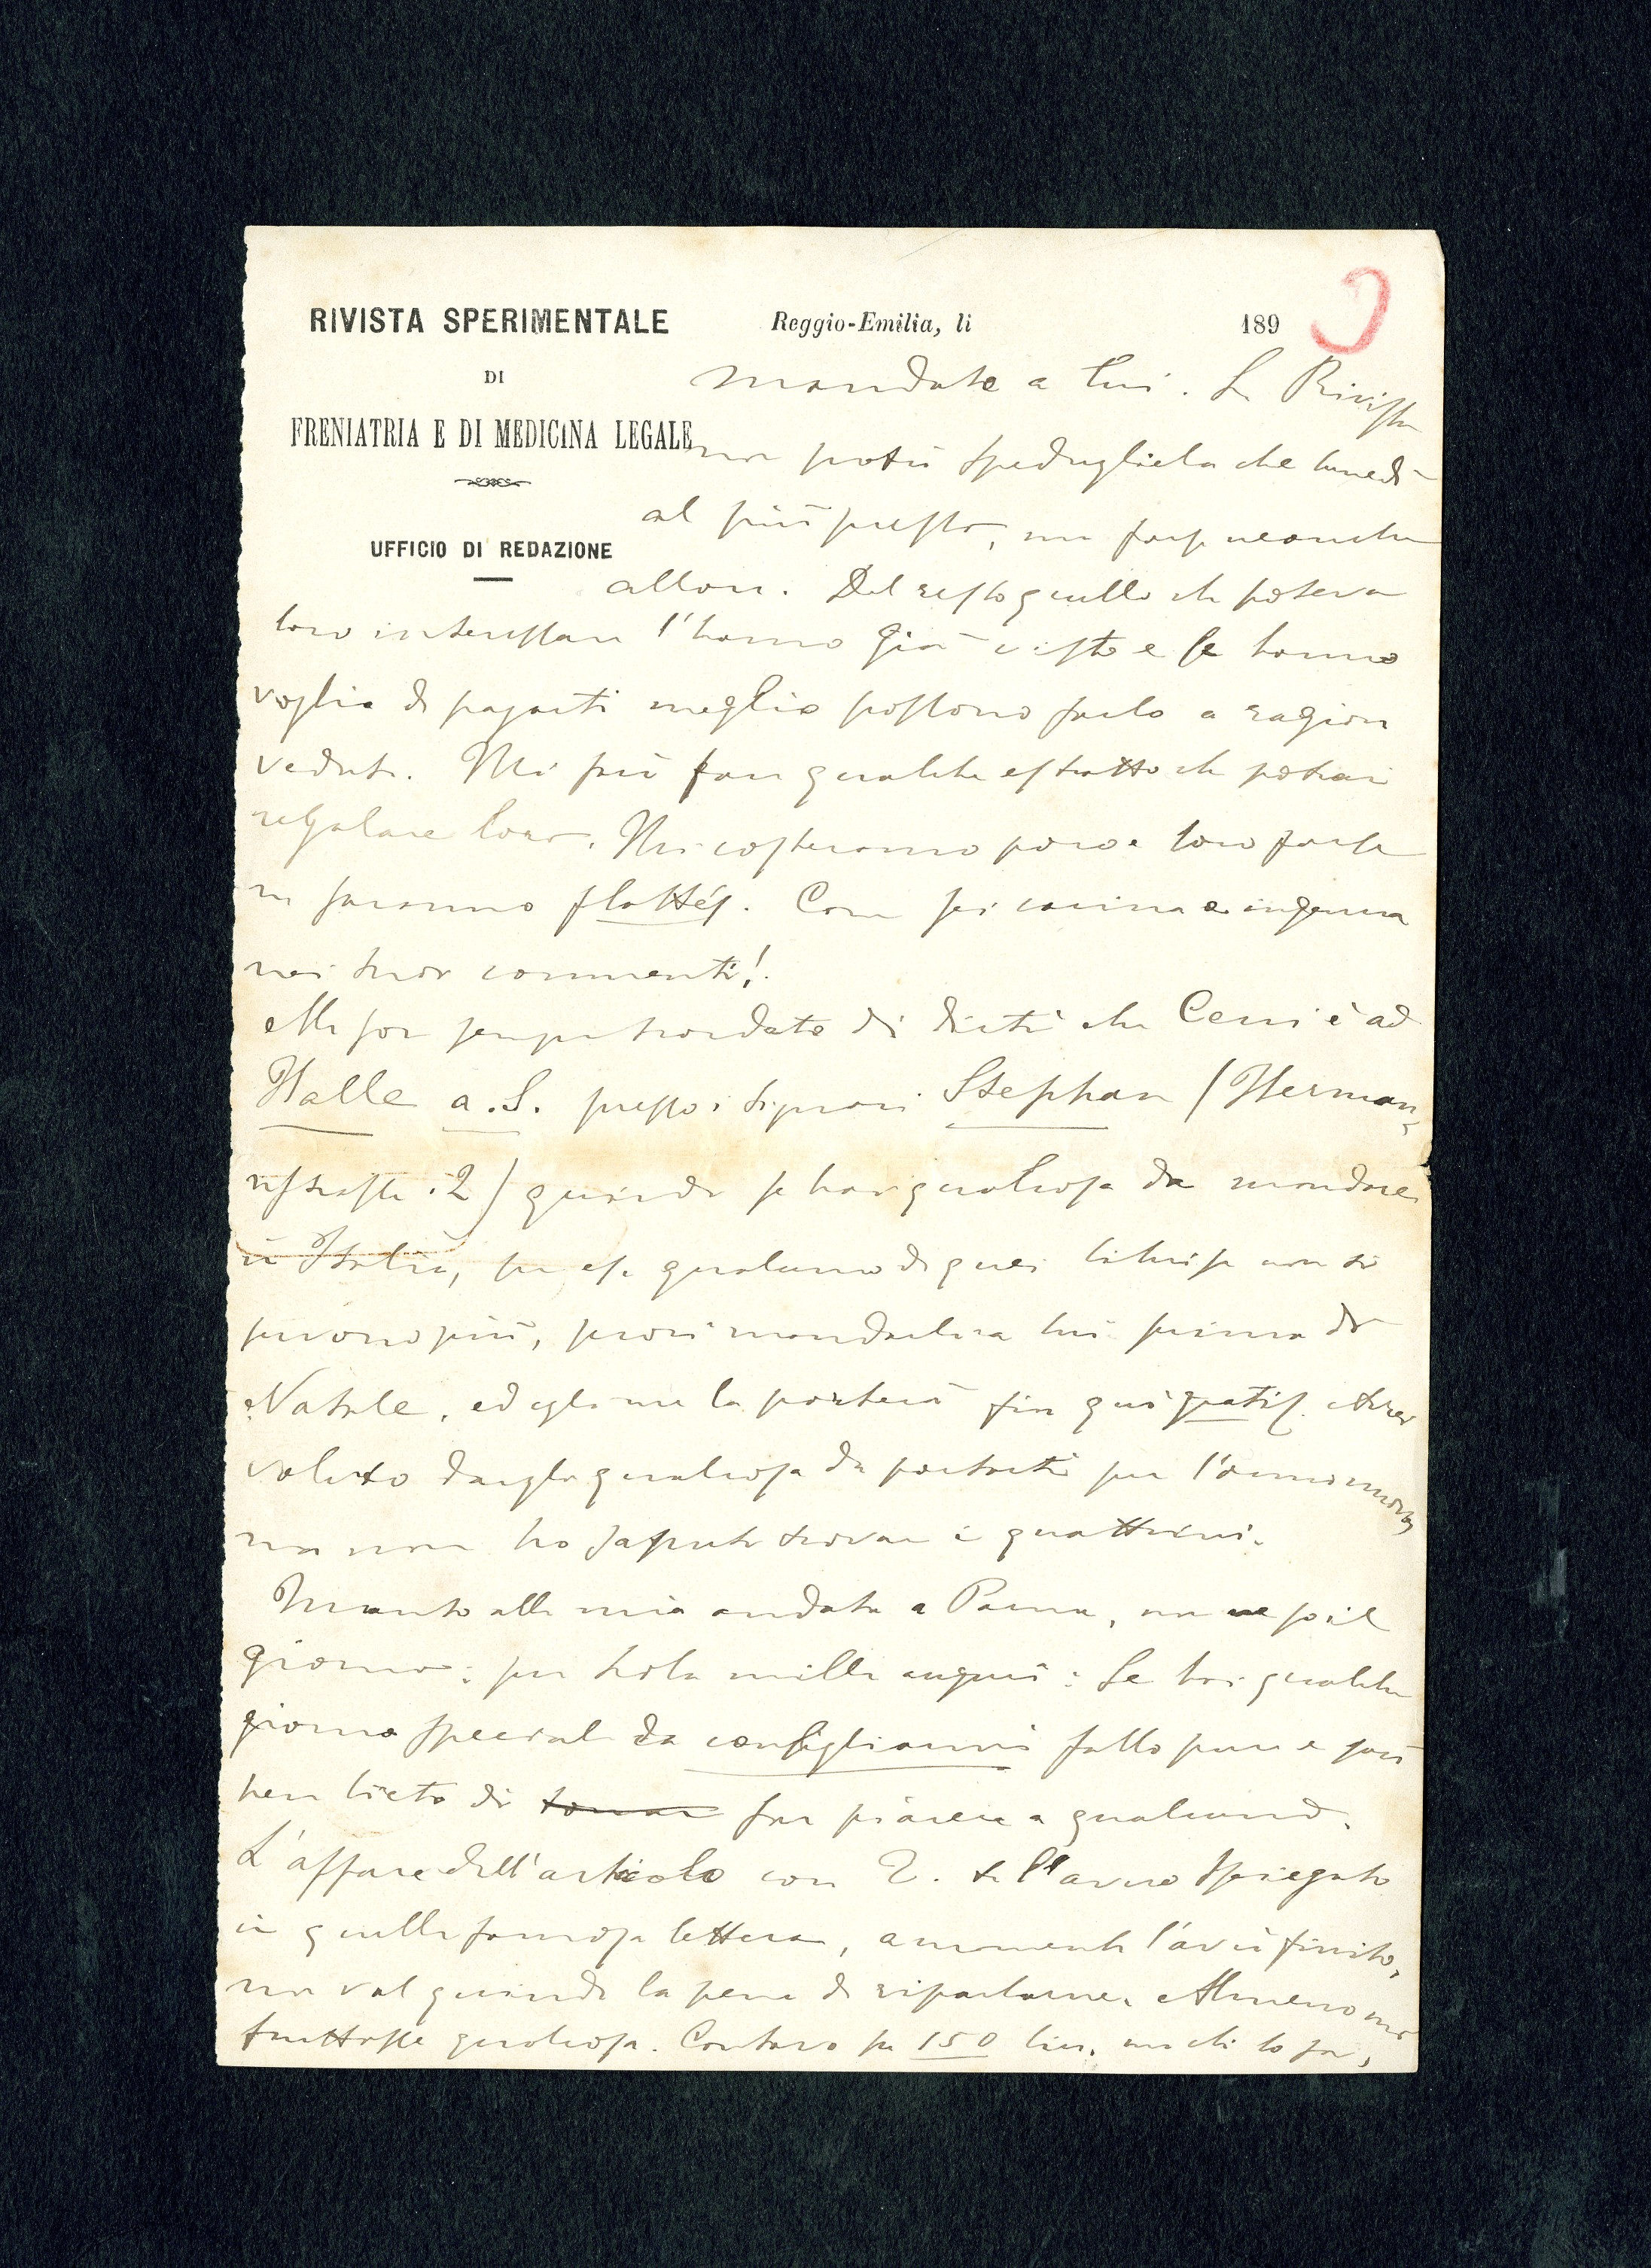 RIVISTA SPERIMENTALE
DI
FRENIATRIA E DI MEDICINA LEGALE
UFFICIO DI REDAZIONE
Reggio-Emilia, li 189
mandato a lui. La Rivista
non potrò spedirgliela che lunedì
al più presto, ma forse neanche
allora. Del resto quello che poteva
loro interessare l'hanno già visto e se hanno
voglia di pagarti meglio possono farlo a ragion
veduta. Mi farò fare qualche estratto che potrai
regalare loro. Mi costeranno poco e loro forse
ne saranno flattés. Come sei carina e ingenua
nei tuoi commenti!
Mi son sempre scordato di dirti che Ceni è ad
Halle a. S. presso i signori Stephan (Herman-
nstrasse 12) quindi se hai qualcosa da mandare
in Italia, per es. qualcuno di quei libri se non si
usano più, puoi mandarlo a lui prima di
Natale, ed egli me la porterà fin qui gratis. Avrei
voluto dargli qualcosa da portarti per l'anno nuovo
ma non ho saputo trovare i quattrini.
Quanto alla mia andata a Parma, non ne so il
giorno: per Lola mille auguri: Se hai qualche
giorno speciale da consigliarmi fallo pure e sarò
ben lieto di far piacere a qualcuno.
L'affare dell'articolo con T. te l'avevo spiegato
in quella famosa lettera, a momenti l'avrò finito,
non val quindi la pena di riparlarne. Almeno mi
fruttasse qualcosa. Contavo su 150 lire, ma chi lo sa,